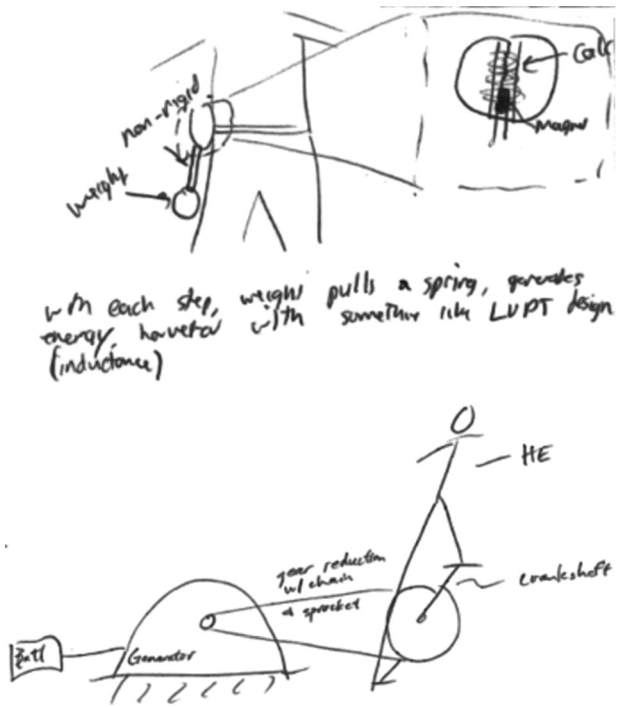 non-rigid
weight
Coil
magnet
with each step, weight pulls a spring, generates
energy harvestor with something like LVPT design
(inductance)
HE
gear reduction
w/ chain
& sprocket
crankshaft
Batt
Generator